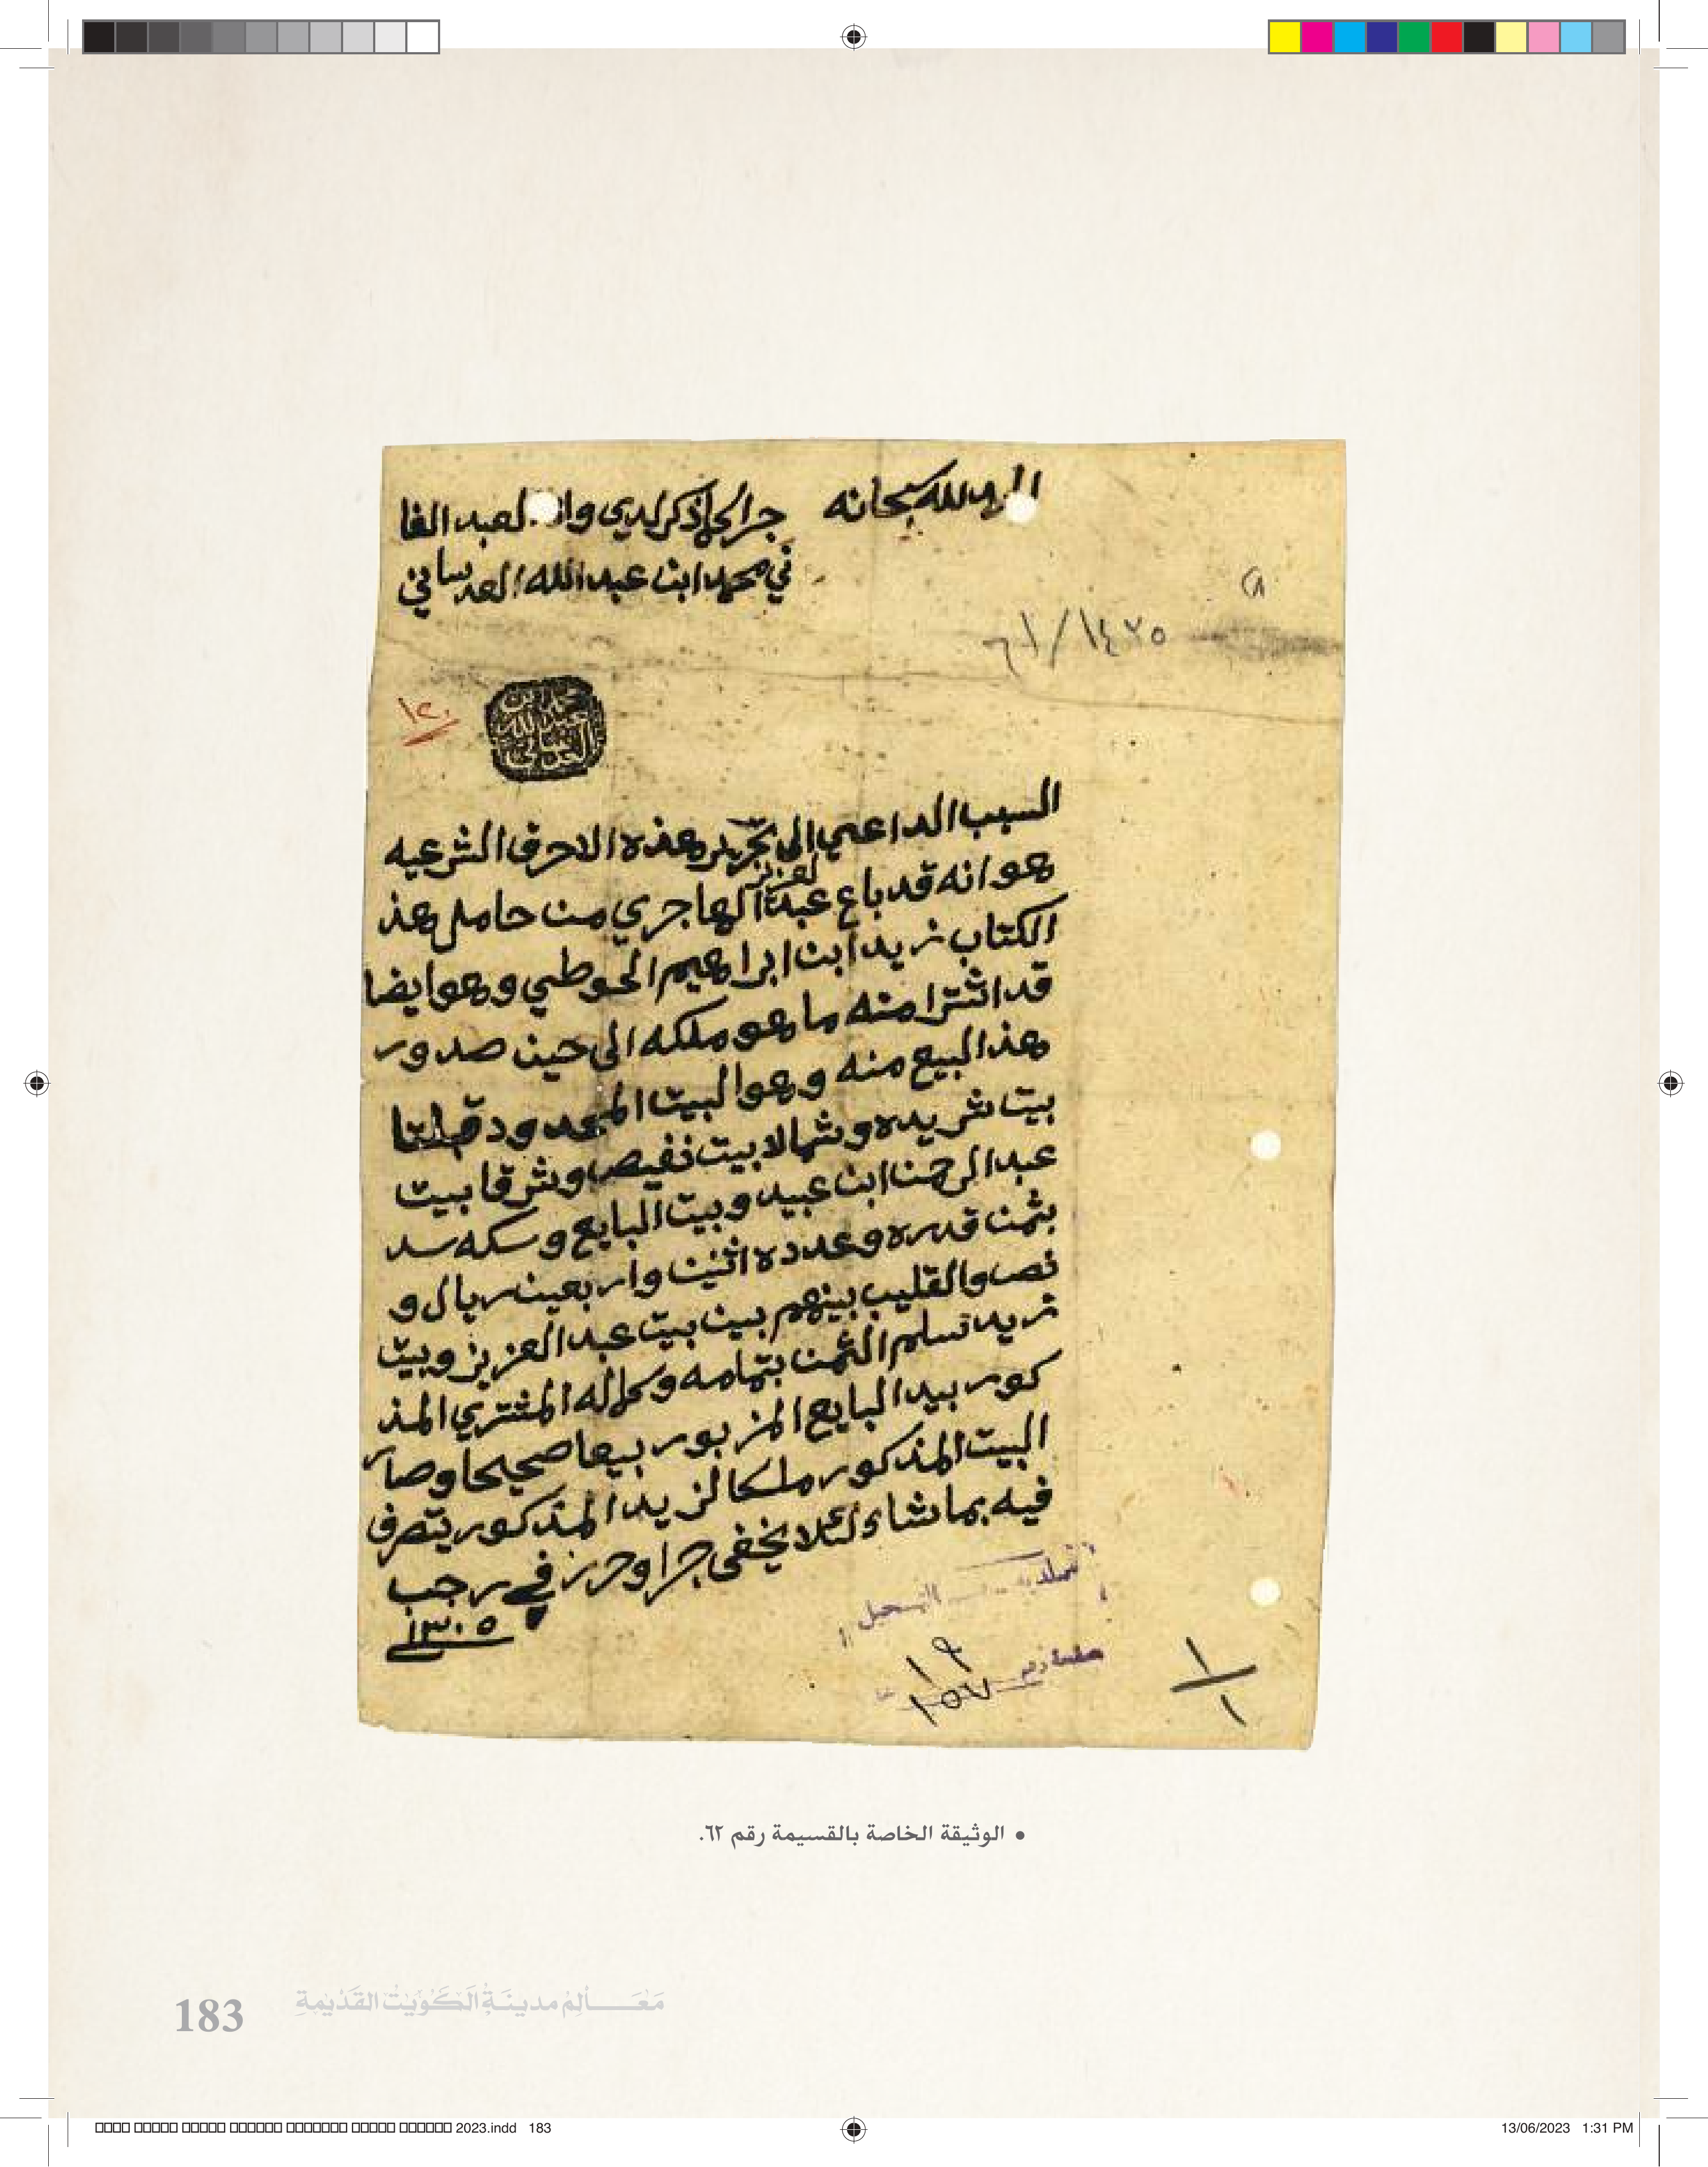 الحمد لله سبحانه
جرا كما ذكر لدي وانا العبد الفا
ني محمد ابن عبدالله العدساني
٦١/١٤٧٥
١٢٠
السبب الداعي الى تحرير هذه الاحرف الشرعيه
هو انه قد باع عبدالعزيز الهاجري من حامل هذ
الكتاب زيد ابن ابراهيم الحوطي وهو ايضا
قد اشترا منه ما هو ملكه الى حين صدور
هذ البيع منه وهو البيت المحدود قبلتا
بيت شريده وشمالا بيت نفيص وشرقا بيت
عبدالرحمن ابن عبيد وبيت البايع وسكه سد
بثمن قدره وعدده اثنين واربعين ريال و
نص والقليب بينهم بين بيت عبدالعزيز وبيت
زيد تسلم الثمن بتمامه وكماله المشتري المذ
كور بيد البايع المزبور بيعا صحيحا وصار
البيت المذكور ملكا لزيد المذكور يتصرف
فيه بما شاء لئلا يخفى جرا وحرر في رجب
١٣٠٥
١٩
١٥٧
١
١
• الوثيقة الخاصة بالقسيمة رقم ٦٢.
183 مَعَالِمُ مدينَةِ الكُوَيْتِ القَدِيْمَةِ
2023.indd 183
13/06/2023 1:31 PM